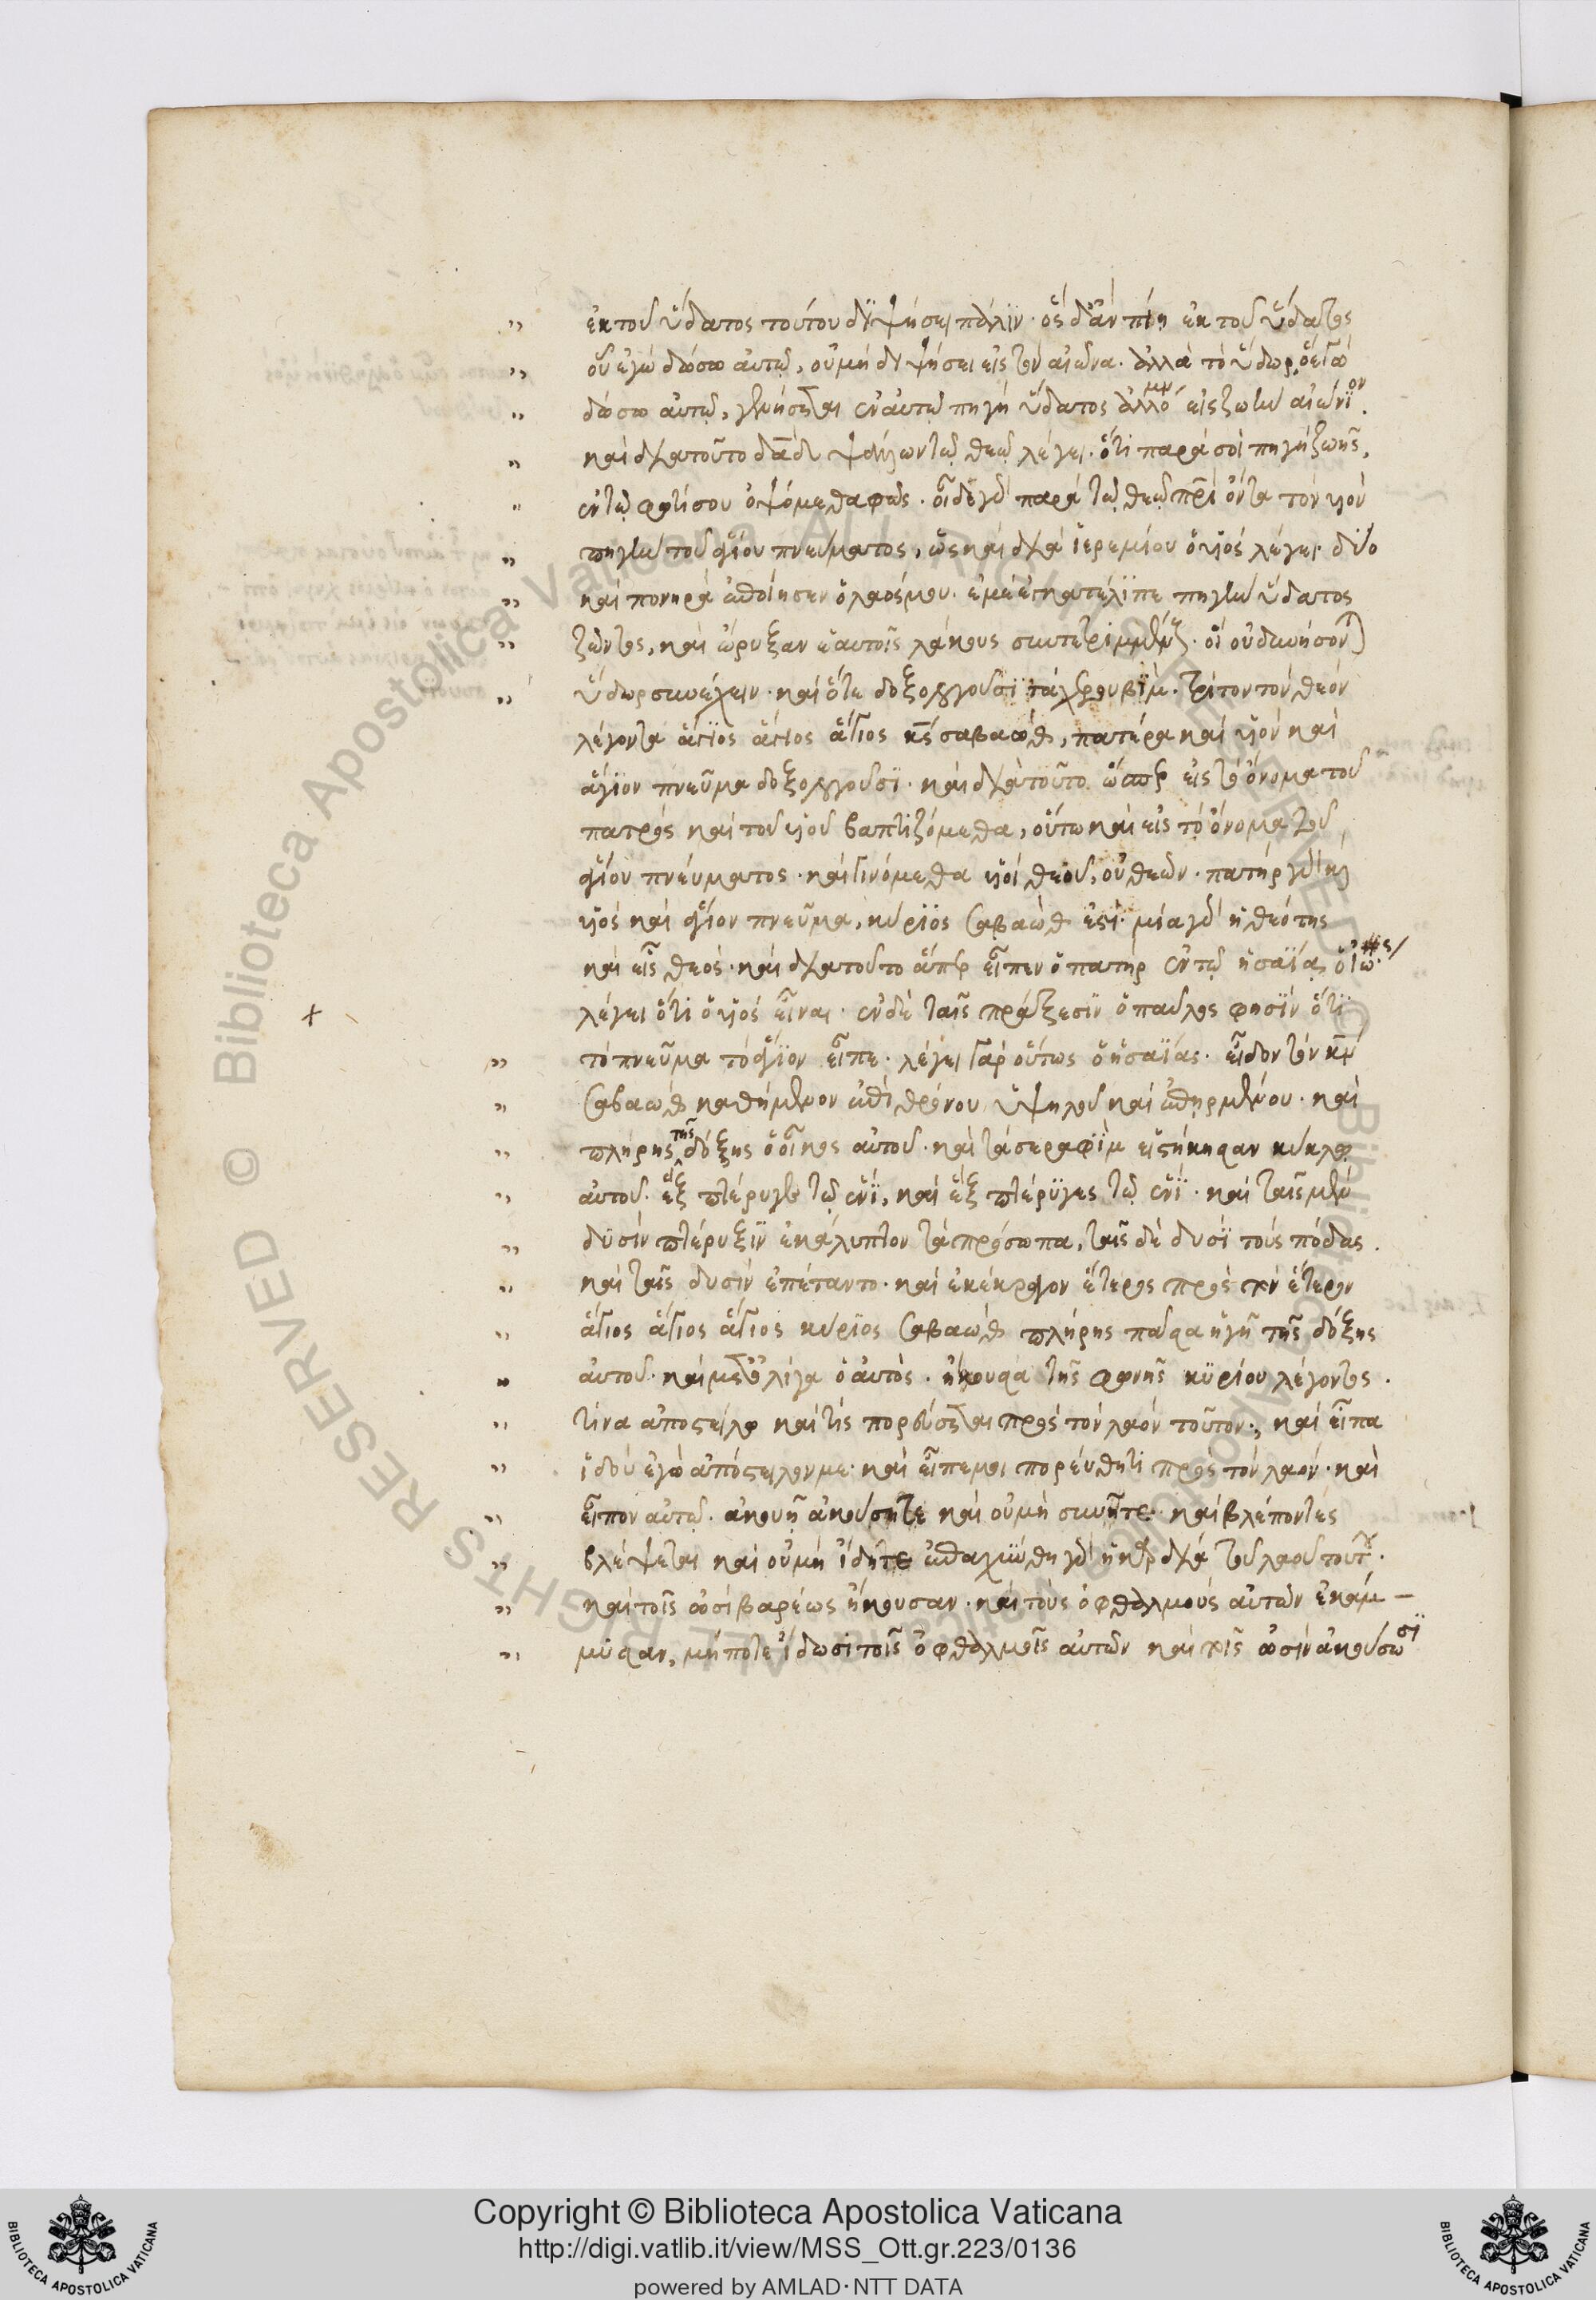 ἐκ τοῦ ὕδατος τούτου διψήσει πάλιν· ὃς δ' ἂν πίῃ ἐκ τοῦ ὕδατος
οὗ ἐγὼ δώσω αὐτῷ, οὐ μὴ διψήσει εἰς τὸν αἰῶνα. ἀλλὰ τὸ ὕδωρ, ὃ ἐγὼ
δώσω αὐτῷ, γενήσεται ἐν αὐτῷ πηγὴ ὕδατος ἁλλομένου εἰς ζωὴν αἰώνιον.
καὶ διὰ τοῦτο δαδ ψάλλων τῷ θεῷ λέγει· ὅτι παρὰ σοὶ πηγὴ ζωῆς,
ἐν τῷ φωτί σου ὀψόμεθα φῶς. οἶδε γὰρ παρὰ τῷ θεῷ πρὶ ὄντα τὸν υἱὸν
πηγὴν τοῦ ἁγίου πνεύματος, ὡς καὶ διὰ ἱερεμίου ὁ υἱὸς λέγει· δύο
καὶ πονηρὰ ἐποίησεν ὁ λαός μου. ἐμὲ ἐγκατέλιπε πηγὴν ὕδατος
ζῶντος, καὶ ὤρυξαν ἑαυτοῖς λάκκους συντετριμμένους. οἳ οὐ δυνήσονται
ὕδωρ συνέχειν. καὶ ὅτε δοξολογοῦσι τὰ χερουβὶμ. τρίτον τὸν θεὸν
λέγοντα ἅγιος ἅγιος ἅγιος κς σαβαὼθ, πατέρα καὶ υἱὸν καὶ
ἅγιον πνεῦμα δοξολογοῦσι. καὶ διὰ τοῦτο ὥσπερ εἰς τὸ ὄνομα τοῦ
πατρὸς καὶ τοῦ υἱοῦ βαπτιζόμεθα, οὕτω καὶ εἰς τὸ ὄνομα τοῦ
ἁγίου πνεύματος. καὶ γινόμεθα υἱοὶ θεοῦ, οὐ θεῶν. πατὴρ γὰρ καὶ
υἱὸς καὶ ἅγιον πνεῦμα, κύριος σαβαὼθ ἐστὶ. μία γὰρ ἡ θεότης
καὶ εἷς θεός. καὶ διὰ τοῦτο ἅπερ εἶπεν ὁ πατὴρ ἐν τῷ ἡσαΐᾳ, ὁ ἰω
λέγει ὅτι ὁ υἱὸς εἶναι. ἐν δὲ ταῖς πράξεσιν ὁ παῦλος φησὶν ὅτι
τὸ πνεῦμα τὸ ἅγιον εἶπε. λέγει γὰρ οὕτως ὁ ἡσαΐας. εἶδον τὸν κν
σαβαὼθ καθήμενον ἐπὶ θρόνου ὑψηλοῦ καὶ ἐπηρμένου. καὶ
πλήρης τῆς δόξης ὁ οἶκος αὐτοῦ. καὶ τὰ σεραφὶμ εἱστήκησαν κύκλῳ
αὐτοῦ. ἓξ πτέρυγες τῷ ἑνὶ, καὶ ἓξ πτέρυγες τῷ ἑνὶ. καὶ ταῖς μὲν
δυσὶν πτέρυξιν ἐκάλυπτον τὰ πρόσωπα, ταῖς δὲ δυσὶ τοὺς πόδας.
καὶ ταῖς δυσὶν ἐπέταντο. καὶ ἐκέκραγον ἕτερος πρὸς τὸν ἕτερον
ἅγιος ἅγιος ἅγιος κύριος σαβαὼθ πλήρης πᾶσα ἡ γῆ τῆς δόξης
αὐτοῦ. καὶ μετ' ὀλίγα ὁ αὐτὸς. ἤκουσα τῆς φωνῆς κυρίου λέγοντος.
τίνα ἀποστείλω καὶ τίς πορεύσεται πρὸς τὸν λαὸν τοῦτον; καὶ εἶπα
ἰδοὺ ἐγὼ ἀπόστειλόν με. καὶ εἶπε μοι πορεύθητι πρὸς τὸν λαόν. καὶ
εἶπον αὐτῷ. ἀκοῇ ἀκούσητε καὶ οὐ μὴ συνῆτε. καὶ βλέποντες
βλέψεται καὶ οὐ μὴ ἴδητε ἐπαχύνθη γὰρ ἡ καρδία τοῦ λαοῦ τούτου.
καὶ τοῖς ὠσὶ βαρέως ἤκουσαν. καὶ τοὺς ὀφθαλμοὺς αὐτῶν ἐκάμ-
μυσαν, μήποτε ἴδωσι τοῖς ὀφθαλμοῖς αὐτῶν καὶ τοῖς ὠσὶν ἀκούσωσι
Copyright © Biblioteca Apostolica Vaticana
http://digi.vatlib.it/view/MSS_Ott.gr.223/0136
powered by AMLAD·NTT DATA